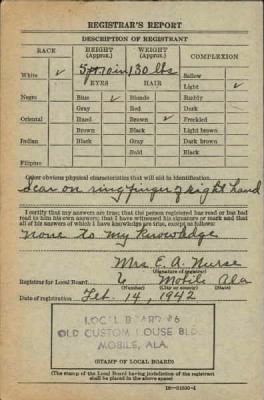 REGISTRAR'S REPORT
DESCRIPTION OF REGISTRANT
RACE HEIGHT (Approx.) WEIGHT (Approx.) COMPLEXION
White ✓ 5 ft 10 in 130 lbs Sallow
EYES HAIR Light ✓
Negro Blue ✓ Blonde Ruddy
Gray Red Dark
Oriental Hazel Brown ✓ Freckled
Brown Black Light brown
Indian Black Gray Dark brown
Bald Black
Filipino
Other obvious physical characteristics that will aid in identification
Scar on ring finger of right hand
I certify that my answers are true; that the person registered has read or has had
read to him his own answers; that I have witnessed his signature or mark and that
all of his answers of which I have knowledge are true, except as follows:
None to my Knowledge
Mrs E. A. Nurse
(Signature of registrar)
Registrar for Local Board 6 Mobile Ala
(Number) (City or county) (State)
Date of registration Feb. 14, 1942
LOCAL BOARD #6
OLD CUSTOM HOUSE BLDG
MOBILE, ALA.
(STAMP OF LOCAL BOARD)
(The stamp of the Local Board having jurisdiction of the registrant
shall be placed in the above space)